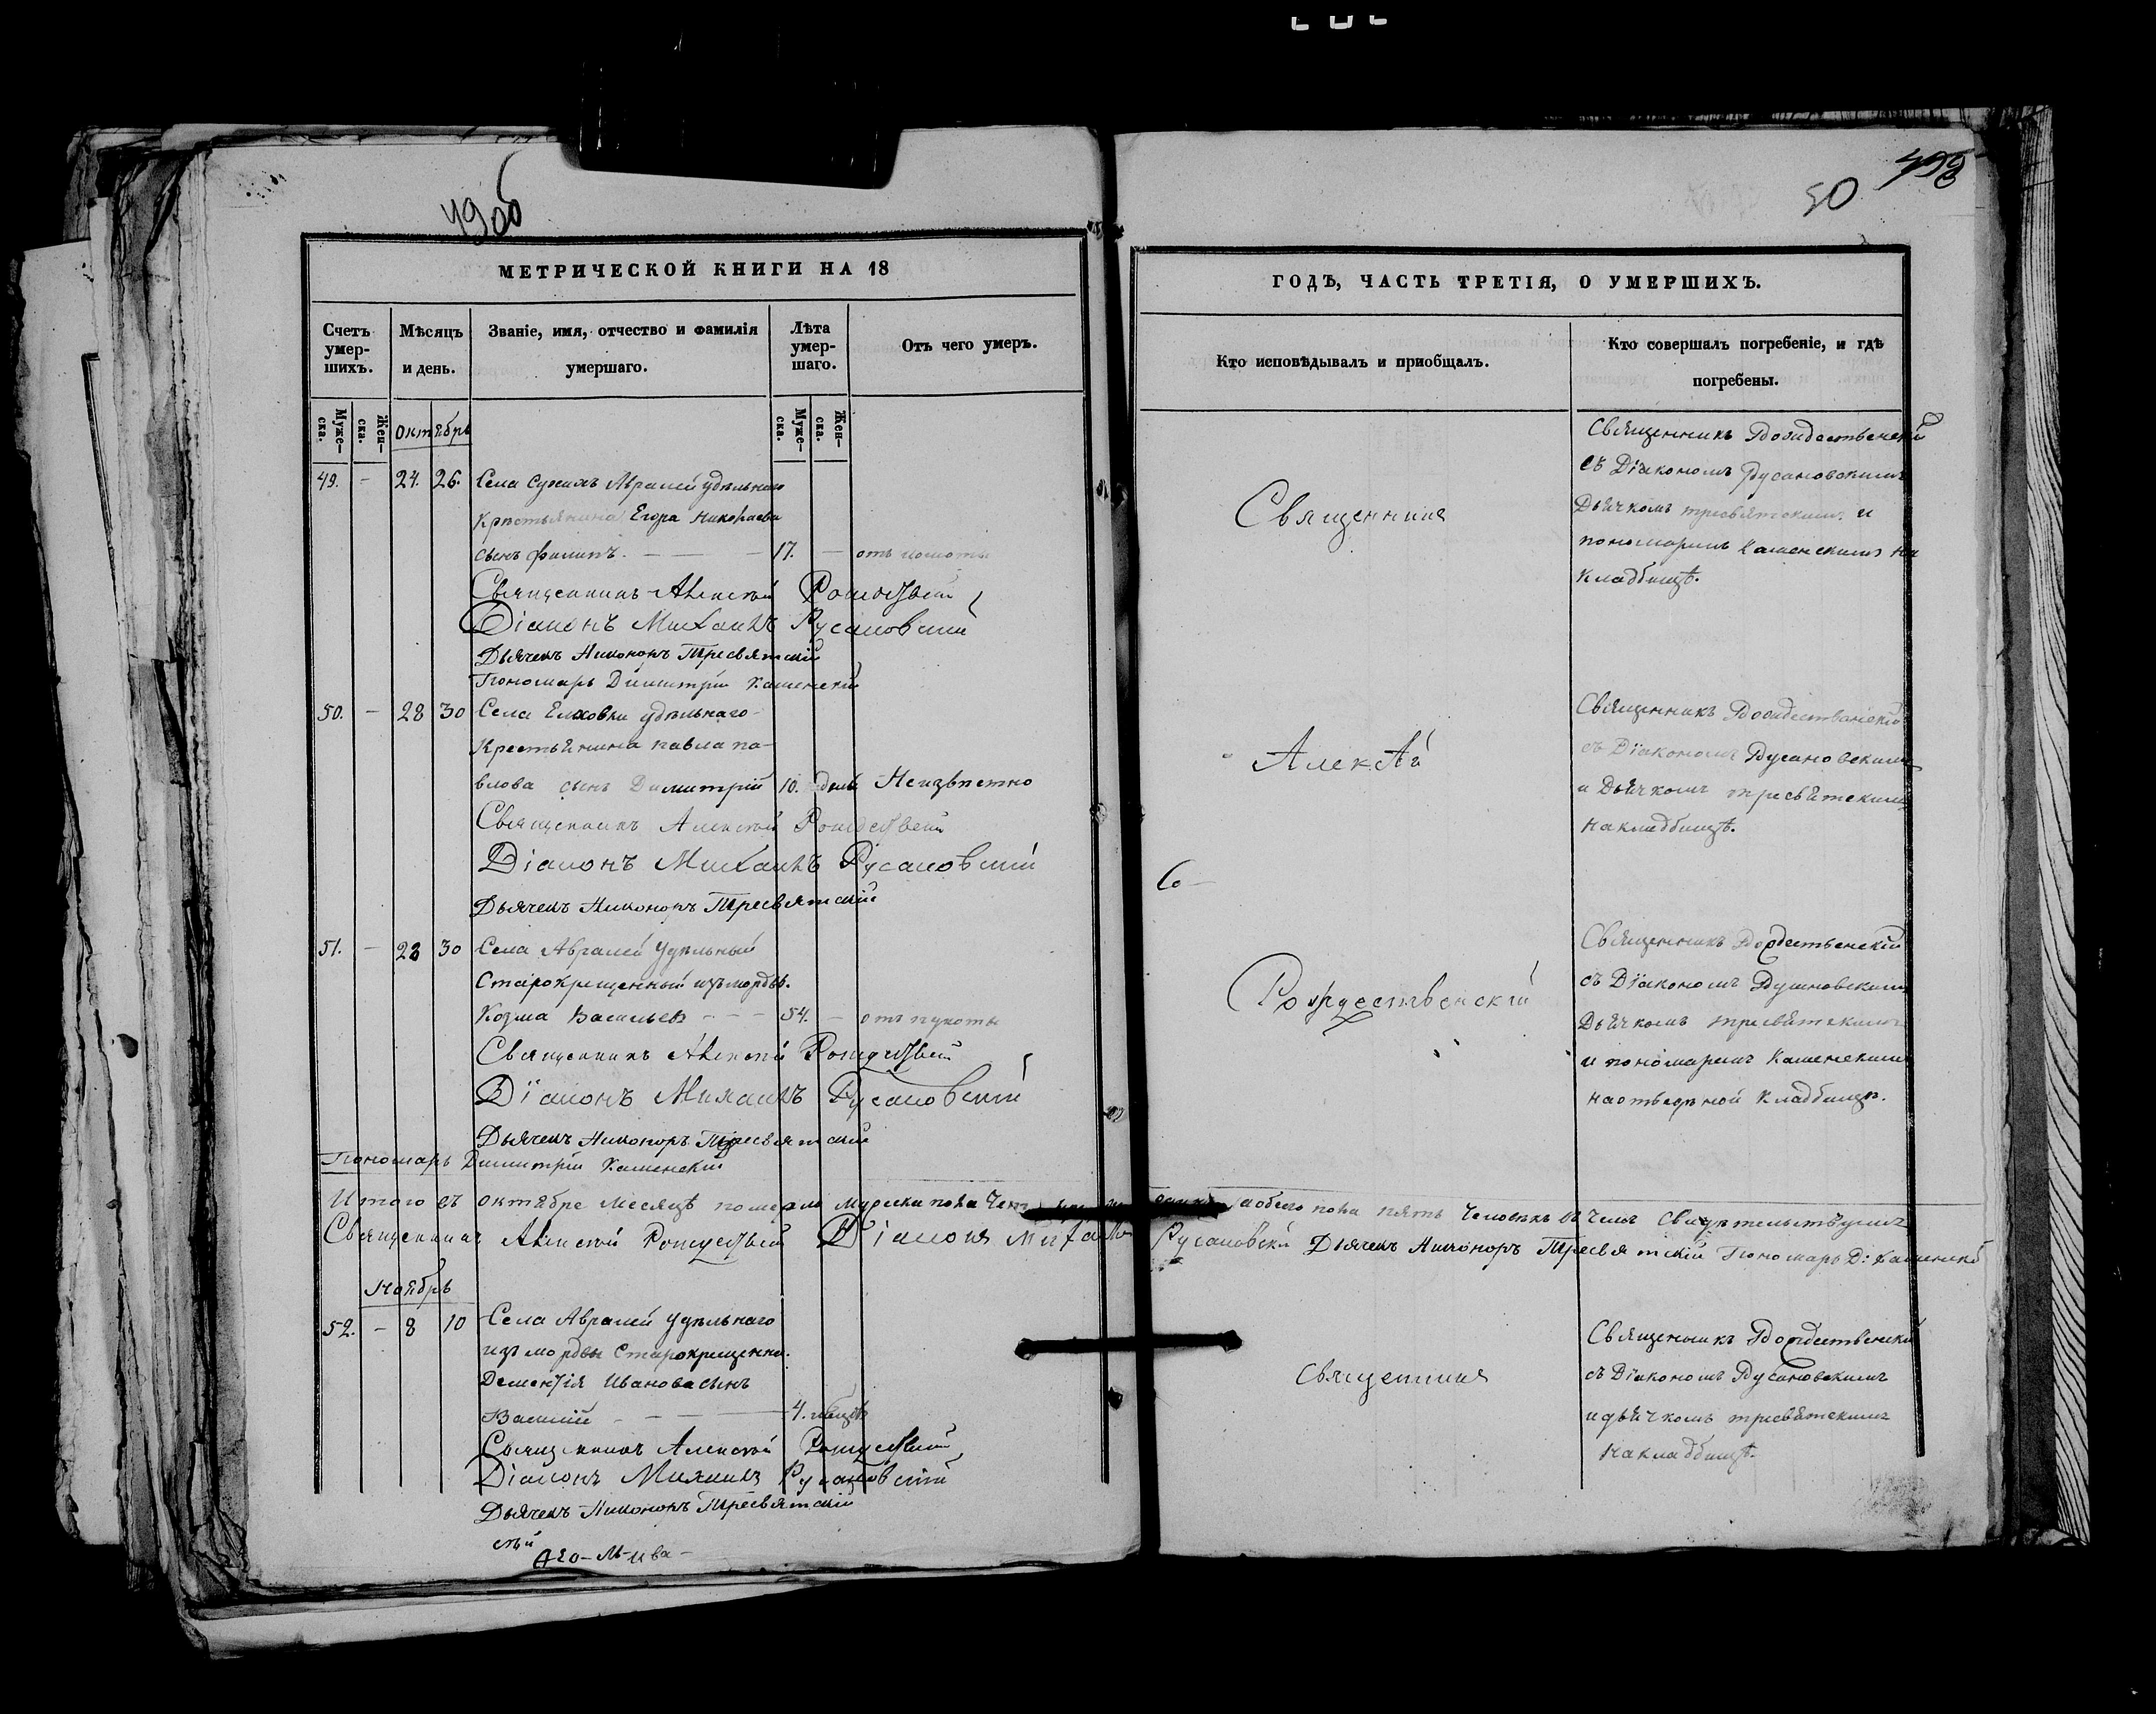 50
МЕТРИЧЕСКОЙ КНИГИ НА 18
Счетъ умер-шихъ.
Мѣсяцъ и день.
Званіе, имя, отчество и фамилія умершаго.
Лѣта умер-шаго.
Отъ чего умеръ.
Муже-ска.
Жен-ска.
Октябрь
Муже-ска.
Жен-ска.
49. - 24. 26. Села Авралей удѣльнаго
Крестьянина Егора Николаева
сынъ Филипъ. 17. -
Священникъ Алексѣй
Діаконъ Михаилъ Русановскій
Дьячекъ Никоноръ Тресвятскій
Пономарь Димитрій Каменскій
50. - 28 30 Села Елховки удѣльнаго
Крестьянина павла па-
влова сынъ Димитрій 10. Неизвѣстно
Священникъ Алексѣй
Діаконъ Михаилъ Русановскій
Дьячекъ Никоноръ Тресвятскій
51. - 28 30 Села Авралей Удѣльный
Старокрещенный изъ мордвы.
Козма Васильевъ - - - 54. -
Священникъ Алексѣй
Діаконъ Михаилъ Русановскій
Дьячекъ Никоноръ Тресвятскій
Пономарь Димитрій Каменскій
Итого въ октябре месяцѣ померло мужска пола обоего пола пять человекъ въ чемъ свидѣтельствуемъ
Священникъ Алексѣй Діаконъ Михаилъ Русановскій Дьячекъ Никоноръ Тресвятскій Пономарь Д: Каменскій
Ноябрь
52. - 8 10 Села Авралей Удѣльнаго
изъ мордвы Старокрещенна.
Дементія Иванова сынъ
Василій 4.
Священникъ Алексѣй
Діаконъ Михаилъ Русановскій
Дьячекъ Никоноръ Тресвятскій
ГОДЪ, ЧАСТЬ ТРЕТІЯ, О УМЕРШИХЪ.
Кто исповѣдывалъ и приобщалъ.
Кто совершалъ погребеніе, и гдѣ погребены.
Священникъ
Алексѣй
Рождественскій
Священникъ
Священникъ Рождественскій
съ Діакономъ Русановскимъ
Дьячкомъ тресвятскимъ и
пономаремъ Каменскимъ на
кладбищѣ.
Священникъ Рождественскій
съ Діакономъ Русановскимъ
и Дьячкомъ тресвятскимъ
на кладбищѣ.
Священникъ Рождественскій
съ Діакономъ Русановскимъ
Дьячкомъ тресвятскимъ
и пономаремъ Каменскимъ
кладбищѣ.
Священникъ Рождественскій
съ Діакономъ Русановскимъ
и дьячкомъ тресвятскимъ
на кладбищѣ.